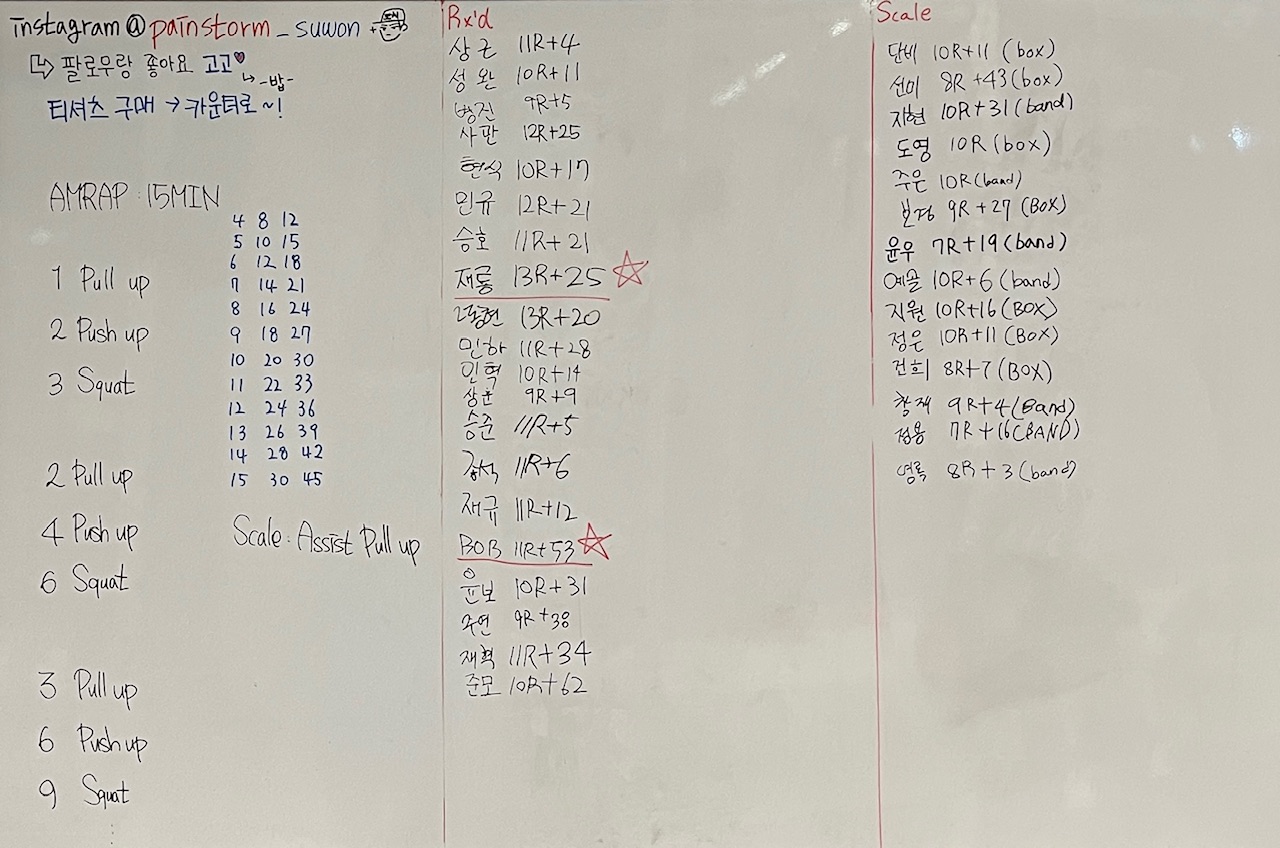 instagram@painstorm_suwon
↳ 팔로우랑 좋아요 고고♥
↳ -밥-
티셔츠 구매 → 카운터로~!
AMRAP : 15MIN
1 Pull up
2 Push up
3 Squat
2 Pull up
4 Push up
6 Squat
3 Pull up
6 Push up
9 Squat
⋮
4 8 12
5 10 15
6 12 18
7 14 21
8 16 24
9 18 27
10 20 30
11 22 33
12 24 36
13 26 39
14 28 42
15 30 45
Scale : Assist Pull up
Rx'd
상근 11R+4
성완 10R+11
병진 9R+5
12R+25
현식 10R+17
민규 12R+21
승호 11R+21
재룡 13R+25 ☆
13R+20
민하 11R+28
민혁 10R+14
상훈 9R+9
승준 11R+5
11R+6
재규 11R+12
BOB 11R+53 ☆
윤보 10R+31
주연 9R+38
재혁 11R+34
준모 10R+62
Scale
단비 10R+11 (box)
선미 8R+43 (box)
지현 10R+31 (band)
도영 10R (box)
주은 10R (band)
보경 9R+27 (BOX)
윤우 7R+19 (band)
예솔 10R+6 (band)
지원 10R+16 (BOX)
정은 10R+11 (BOX)
건희 8R+7 (BOX)
창재 9R+4 (Band)
정용 7R+16 (BAND)
영록 8R+3 (band)